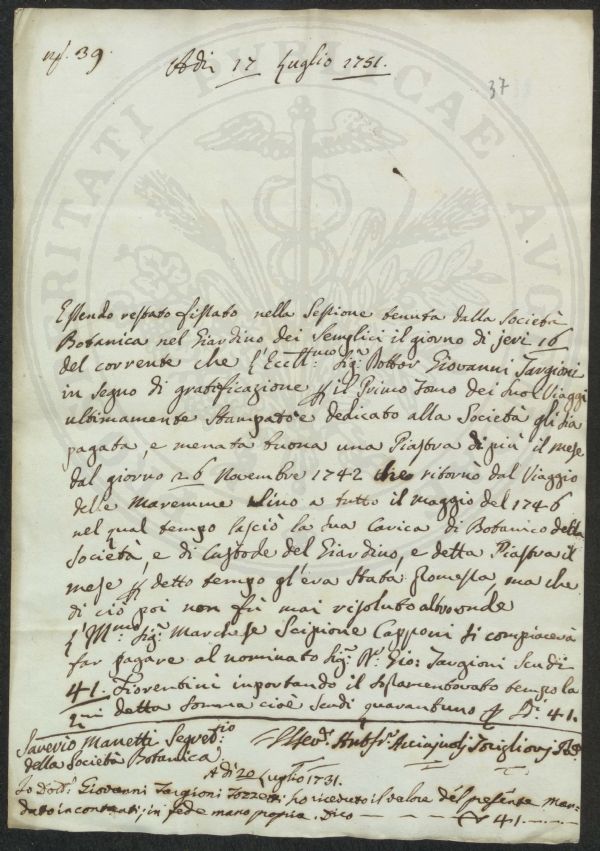 nº. 39.
Adì 17 Luglio 1751.
37
Essendo restato fissato nella Sessione tenuta dalla Società
Botanica nel Giardino dei Semplici il giorno di jeri 16
del corrente che l'Eccmo: Sig: Dottor Giovanni Targioni
in segno di gratificazione il Primo Tomo dei suoi Viaggi
ultimamente Stampato e dedicato alla Società gli sia
pagata, e menata buona una Piastra di più il mese
dal giorno 26 Novembre 1742 ritornò dal Viaggio
delle Maremme sino a tutto il maggio del 1746
nel qual tempo lasciò la sua Carica di Botanico della
Società, e di Custode del Giardino, e detta Piastra il
mese detto tempo gl'era stata promessa, ma che
di ciò poi non fù mai risoluto altro onde
l'Illmo: Sig: Marchese Scipione Capponi si compiacerà
far pagare al nominato Sig: Dr. Gio: Targioni Scudi
41. Fiorentini importando il tempo la
detta Somma cioè Scudi quarantuno 41.
Saverio Manetti Segretrio
della Società Botanica
A dì 20 Luglio 1751.
Io Dottr: Giovanni Targioni Tozzetti ho ricevuto il valore del presente man-
dato in contanti; in fede mano propria. dico - - - - 41. - -
VERITATI PUBLICAE AVG